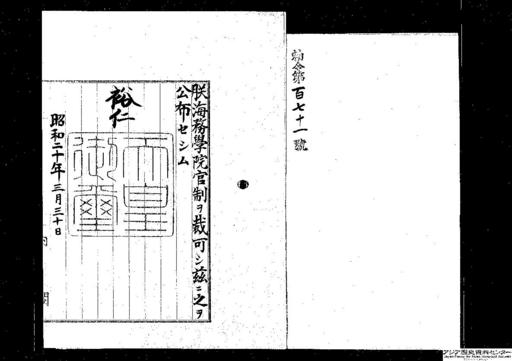 勅令第百七十一號
朕海務學院官制ヲ裁可シ茲ニ之ヲ
公布セシム
裕仁
天皇御璽
昭和二十年三月三十日
内閣
アジア歴史資料センター